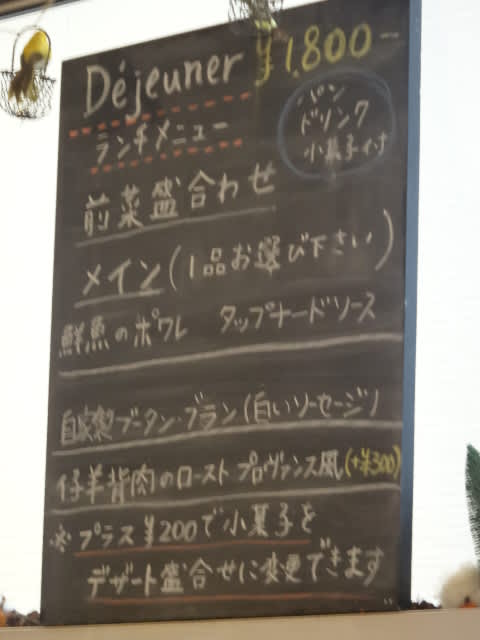 Déjeuner ¥1,800-
ランチメニュー
パン
ドリンク
小菓子付
前菜盛合わせ
メイン(1品お選び下さい)
鮮魚のポワレ タップナードソース
自家製ブータン・ブラン(白いソーセージ)
仔羊背肉のロースト プロヴァンス風(+¥300)
※プラス¥200で小菓子を
デザート盛合せに変更できます